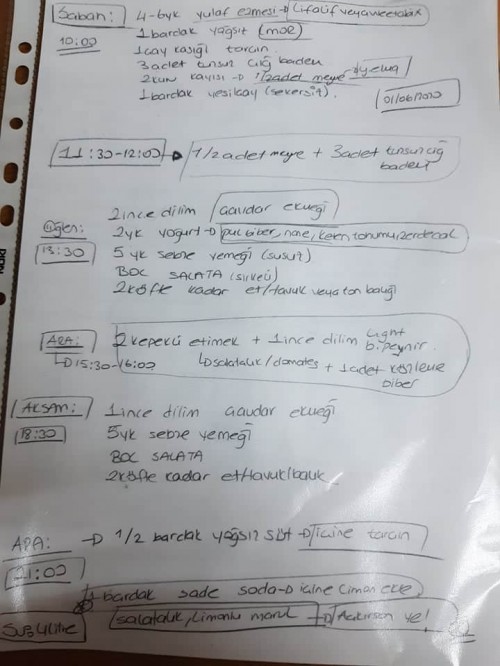 Sabah: 4-6yk yulaf ezmesi → Lifalif veya weetabix
1 bardak yağsız (mor)
10:00 1 çay kaşığı tarçın
3 adet tuzsuz çiğ badem
2 kuru kayısı → 1/2 adet meyve
1 bardak yeşilçay (şekersiz).
01/06/2020
11:30-12:00 → 1/2 adet meyve + 3 adet tuzsuz çiğ
badem
2 ince dilim çavdar ekmeği
Öğlen: 2yk yoğurt → pul biber, nane, keten tohumu, zerdeçal
13:30 5 yk sebze yemeği (susuz)
BOL SALATA (sirkeli)
2 köfte kadar et/tavuk veya ton balığı
ARA: 2 kepekli etimek + 1 ince dilim light
b.peynir.
→ 15:30-16:00 → salatalık/domates + 1 adet
biber
AKŞAM: 1 ince dilim çavdar ekmeği
18:30 5yk sebze yemeği
BOL SALATA
2 köfte kadar et/tavuk/balık
ARA: → 1/2 bardak yağsız süt → içine tarçın
21:00
1 bardak sade soda → içine limon ekle
Su 3 litre salatalık, limonlu marul → Acıkırsan ye!